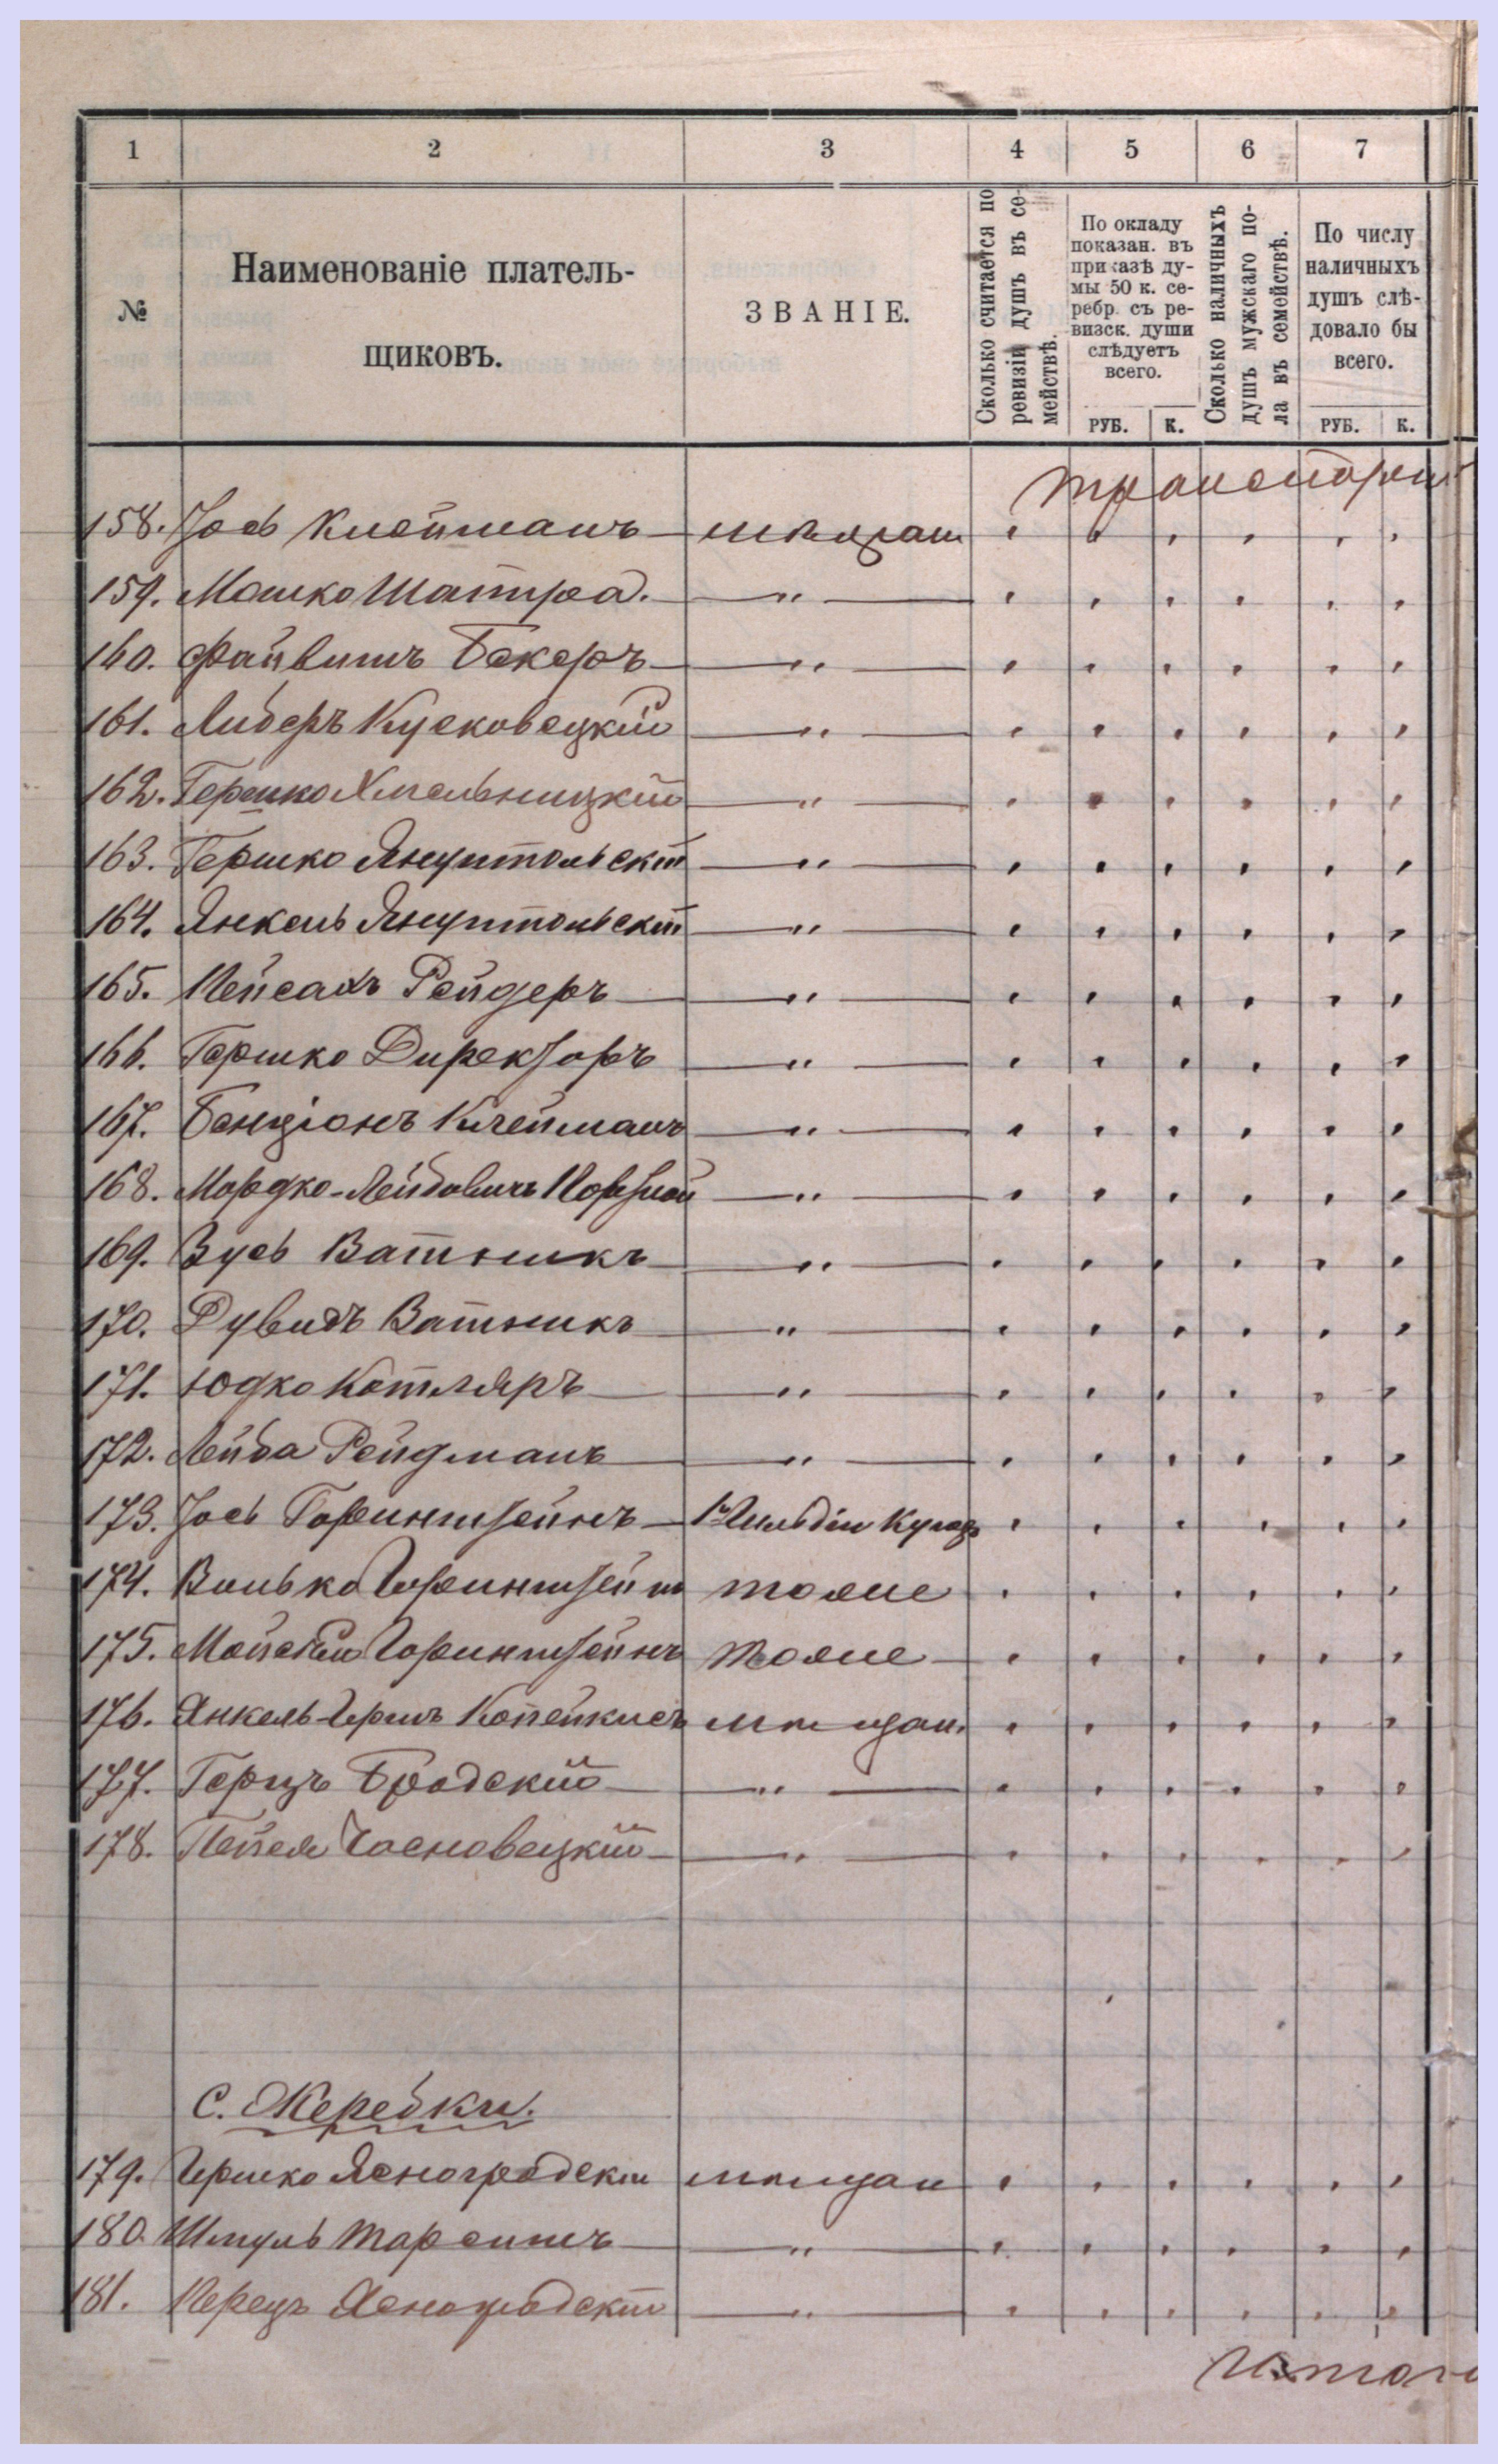 1 2 3 4 5 6 7
№
Наименованіе платель-
щиковъ.
ЗВАНІЕ.
Сколько считается по
ревизіи душъ въ се-
мействѣ.
По окладу
показан. въ
приказѣ ду-
мы 50 к. се-
ребр. съ ре-
визск. души
слѣдуетъ
всего.
РУБ. К.
Сколько наличныхъ
душъ мужскаго по-
ла въ семействѣ.
По числу
наличныхъ
душъ слѣ-
довало бы
всего.
РУБ. К.
транспорт
158. Іось Клейманъ мѣщан
159. Мошко Шапира. "
160. Файвишъ Бекеръ "
161. Либеръ Кусковецкій "
162. Гершко Хмельницкій "
163. Гершко Янушпольскій "
164. Янкель Янушпольскій "
165. Пейсахъ Рейдеръ "
166. Гершко Директоръ "
167. Бенціонъ Клейманъ "
168. Мордко-Лейбовичъ Портной "
169. Зусь Ватникъ "
170. Дувидъ Ватникъ "
171. Юдко Котляръ "
172. Лейба Рейдманъ "
173. Іось Горинштейнъ 1й Гильдіи Купец
174. Волько Горинштейнъ тоже
175. Мойсей Горинштейнъ тоже
176. Янкель-Гершъ Копейкисъ мѣщан.
177. Герцъ Бродскій "
178. Пейся Чосновецкій "
С. Жеребки.
179. Гершко Ясногродскій мѣщан
180. Шмуль "
181. Перецъ Ясногродскій "
Итого